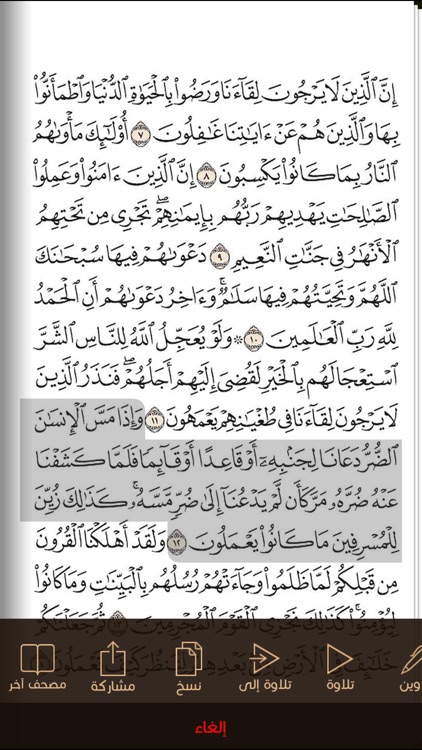 إِنَّ ٱلَّذِينَ لَا يَرْجُونَ لِقَآءَنَا وَرَضُوا۟ بِٱلْحَيَوٰةِ ٱلدُّنْيَا وَٱطْمَأَنُّوا۟
بِهَا وَٱلَّذِينَ هُمْ عَنْ ءَايَٰتِنَا غَٰفِلُونَ ٧ أُو۟لَٰٓئِكَ مَأْوَىٰهُمُ
ٱلنَّارُ بِمَا كَانُوا۟ يَكْسِبُونَ ٨ إِنَّ ٱلَّذِينَ ءَامَنُوا۟ وَعَمِلُوا۟
ٱلصَّٰلِحَٰتِ يَهْدِيهِمْ رَبُّهُم بِإِيمَٰنِهِمْ ۖ تَجْرِى مِن تَحْتِهِمُ
ٱلْأَنْهَٰرُ فِى جَنَّٰتِ ٱلنَّعِيمِ ٩ دَعْوَىٰهُمْ فِيهَا سُبْحَٰنَكَ
ٱللَّهُمَّ وَتَحِيَّتُهُمْ فِيهَا سَلَٰمٌ ۚ وَءَاخِرُ دَعْوَىٰهُمْ أَنِ ٱلْحَمْدُ
لِلَّهِ رَبِّ ٱلْعَٰلَمِينَ ١٠ ۞ وَلَوْ يُعَجِّلُ ٱللَّهُ لِلنَّاسِ ٱلشَّرَّ
ٱسْتِعْجَالَهُم بِٱلْخَيْرِ لَقُضِىَ إِلَيْهِمْ أَجَلُهُمْ ۖ فَنَذَرُ ٱلَّذِينَ
لَا يَرْجُونَ لِقَآءَنَا فِى طُغْيَٰنِهِمْ يَعْمَهُونَ ١١ وَإِذَا مَسَّ ٱلْإِنسَٰنَ
ٱلضُّرُّ دَعَانَا لِجَنۢبِهِۦٓ أَوْ قَاعِدًا أَوْ قَآئِمًا فَلَمَّا كَشَفْنَا
عَنْهُ ضُرَّهُۥ مَرَّ كَأَن لَّمْ يَدْعُنَآ إِلَىٰ ضُرٍّ مَّسَّهُۥ ۚ كَذَٰلِكَ زُيِّنَ
لِلْمُسْرِفِينَ مَا كَانُوا۟ يَعْمَلُونَ ١٢ وَلَقَدْ أَهْلَكْنَا ٱلْقُرُونَ
مِن قَبْلِكُمْ لَمَّا ظَلَمُوا۟ وَجَآءَتْهُمْ رُسُلُهُم بِٱلْبَيِّنَٰتِ وَمَا كَانُوا۟
لِيُؤْمِنُوا۟ ۚ كَذَٰلِكَ نَجْزِى ٱلْقَوْمَ ٱلْمُجْرِمِينَ ١٣ ثُمَّ جَعَلْنَٰكُمْ
خَلَٰٓئِفَ فِى ٱلْأَرْضِ مِنۢ بَعْدِهِمْ لِنَنظُرَ كَيْفَ تَعْمَلُونَ
وين تلاوة تلاوة إلى نسخ مشاركة مصحف آخر
إلغاء